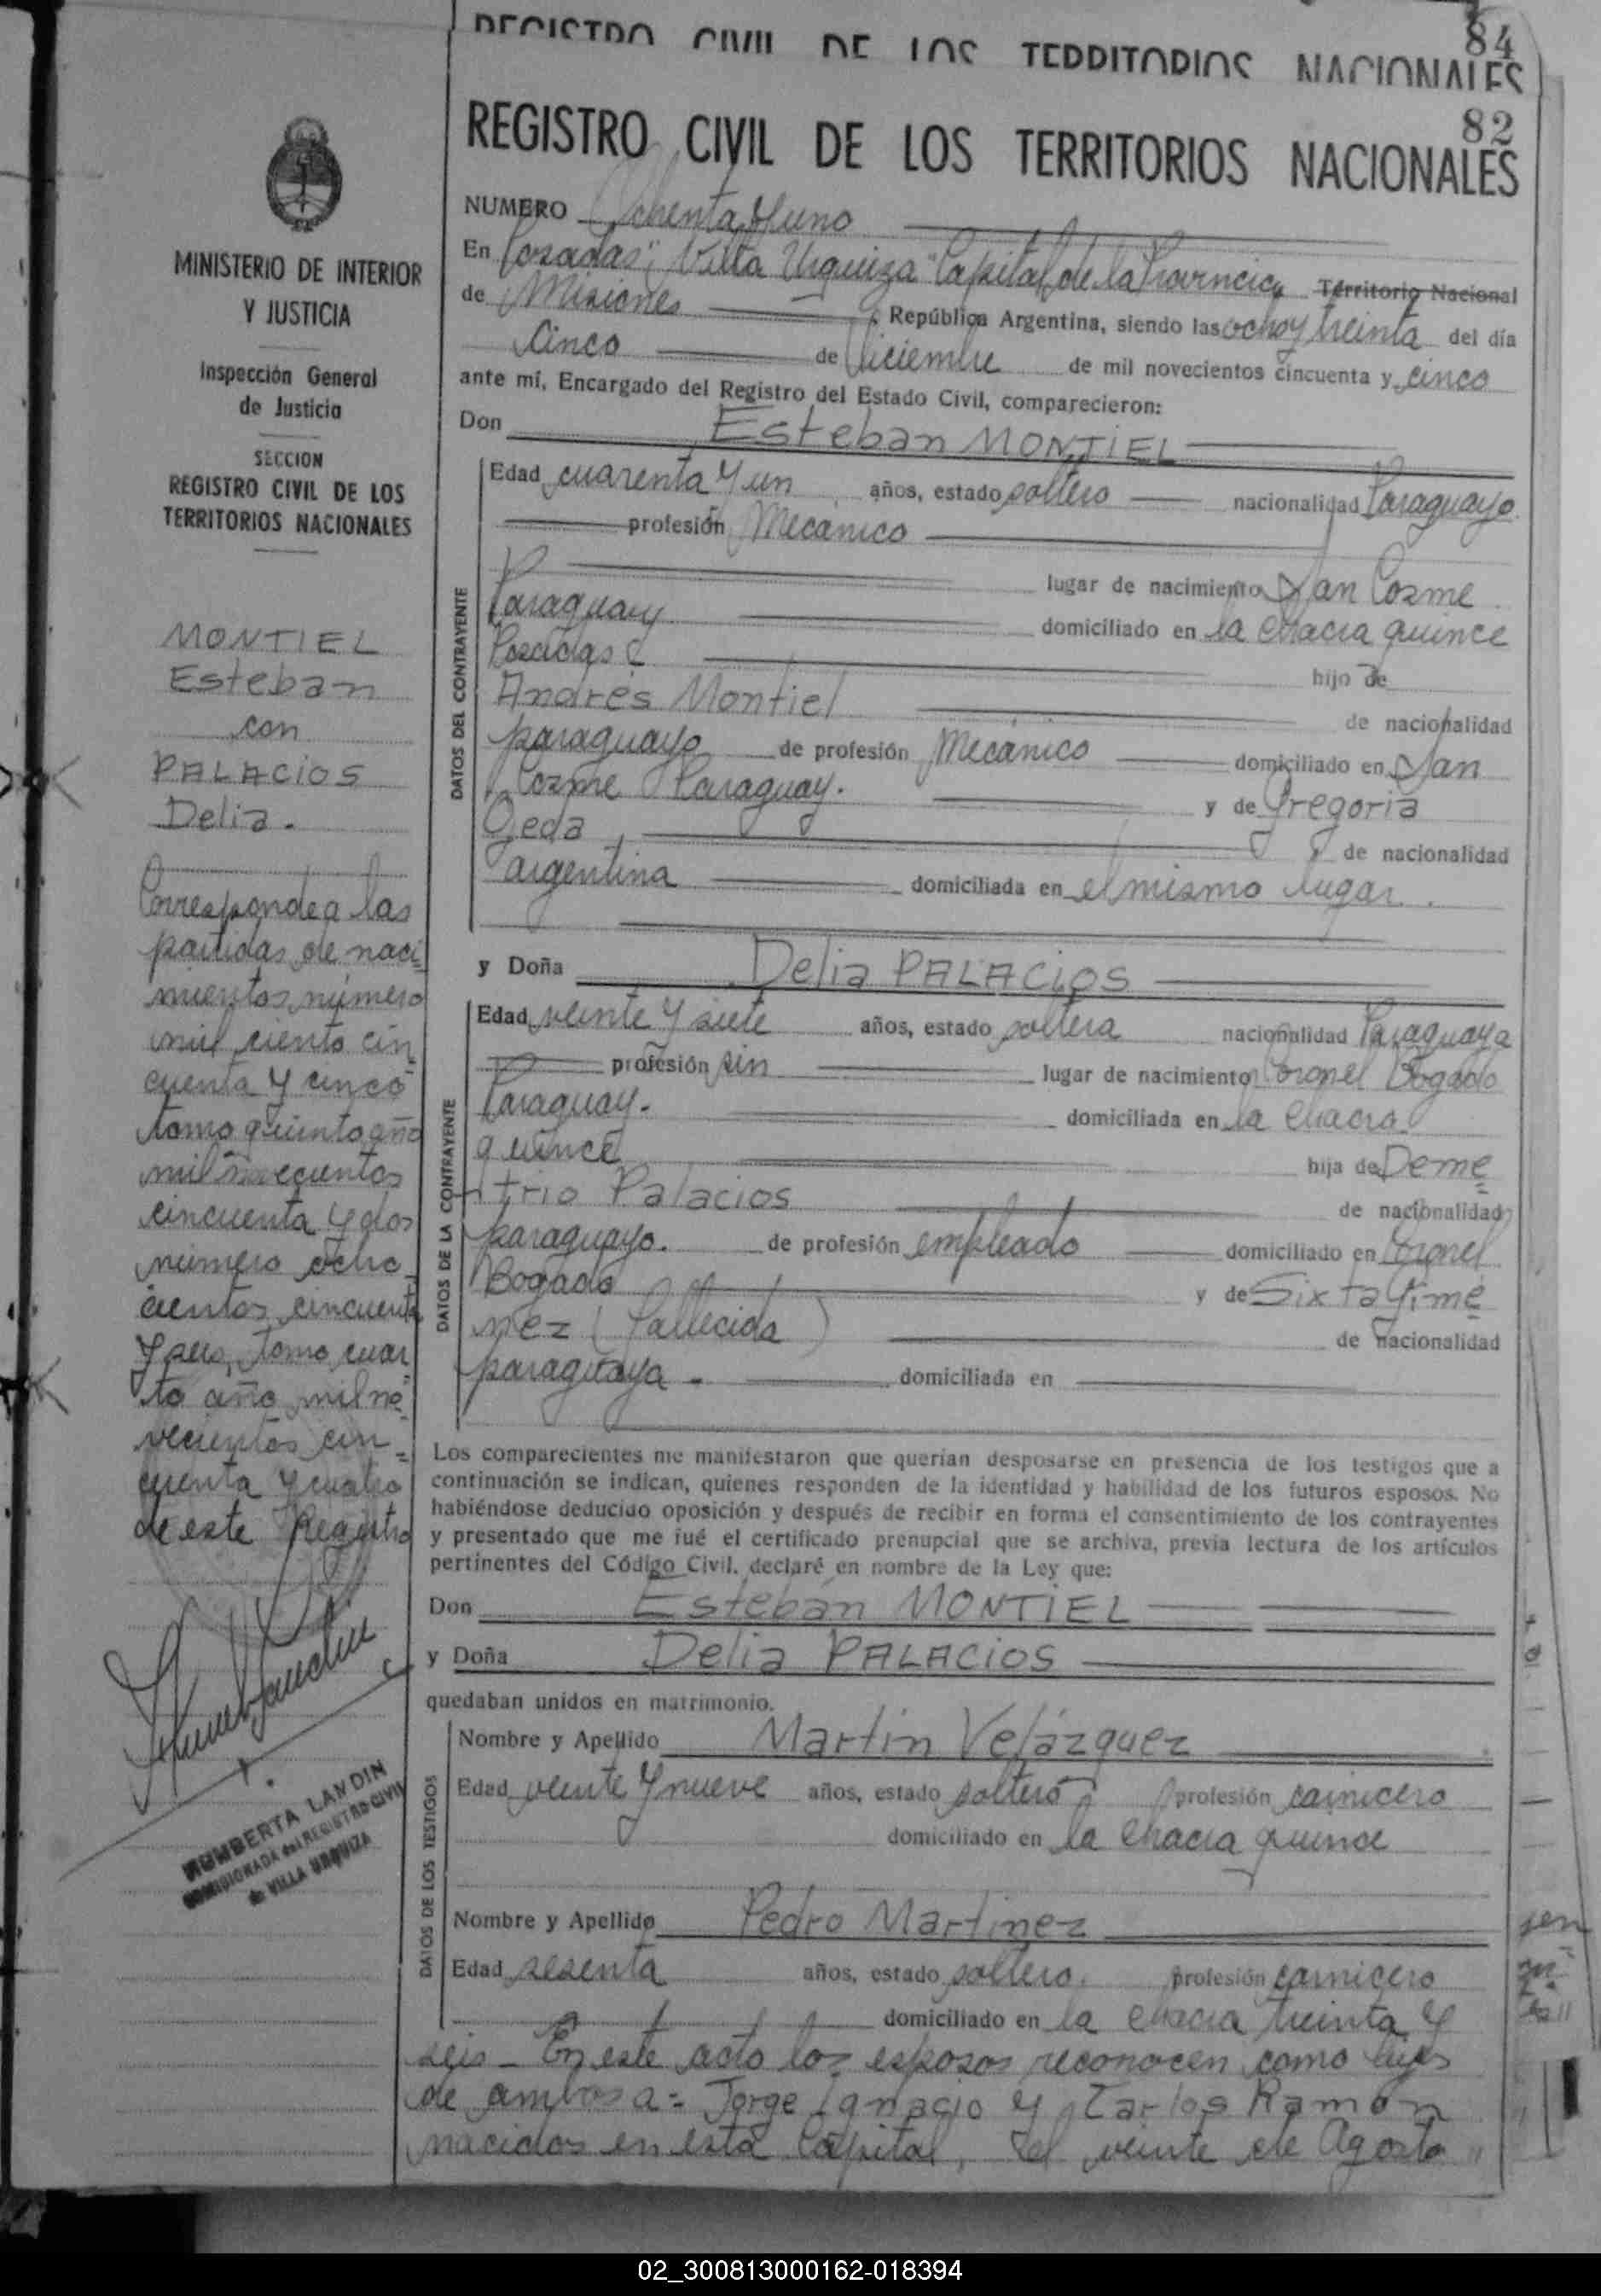 REGISTRO CIVIL DE LOS TERRITORIOS NACIONALES
84
REGISTRO CIVIL DE LOS TERRITORIOS NACIONALES
82
MINISTERIO DE INTERIOR
Y JUSTICIA
Inspección General
de Justicia
SECCION
REGISTRO CIVIL DE LOS
TERRITORIOS NACIONALES
MONTIEL
Esteban
con
PALACIOS
Delia.
Corresponde a las
partidas de naci=
mientos número
mil ciento cin
cuenta y cinco
tomo quinto año
mil novecientos
cincuenta y dos
número ocho
cientos cincuenta
y seis, tomo cuar
to año mil no=
vecientos cin=
cuenta y cuatro
de este Registro
HUMBERTA LANDIN
COMISIONADA del REGISTRO CIVIL
de VILLA URQUIZA
NUMERO Ochenta y uno
En Posadas; Villa Urquiza Capital de la Provincia Territorio Nacional
de Misiones República Argentina, siendo las ocho y treinta del día
Cinco de Diciembre de mil novecientos cincuenta y cinco
ante mí, Encargado del Registro del Estado Civil, comparecieron:
Don Esteban MONTIEL
DATOS DEL CONTRAYENTE
Edad cuarenta y un años, estado soltero nacionalidad Paraguayo
profesión Mecánico
lugar de nacimiento San Cosme
Paraguay domiciliado en la chacra quince
Posadas hijo de
Andrés Montiel de nacionalidad
paraguayo de profesión Mecánico domiciliado en San
Cosme Paraguay. y de Gregoria
Ojeda de nacionalidad
argentina domiciliada en el mismo lugar.
y Doña Delia PALACIOS
DATOS DE LA CONTRAYENTE
Edad veinte y siete años, estado soltera nacionalidad Paraguaya
profesión sin lugar de nacimiento Coronel Bogado
Paraguay. domiciliada en la chacra
quince hija de Deme=
trio Palacios de nacionalidad
paraguayo. de profesión empleado domiciliado en Coronel
Bogado y de Sixta Gime=
nez (Fallecida) de nacionalidad
paraguaya. domiciliada en
Los comparecientes me manifestaron que querían desposarse en presencia de los testigos que a
continuación se indican, quienes responden de la identidad y habilidad de los futuros esposos. No
habiéndose deducido oposición y después de recibir en forma el consentimiento de los contrayentes
y presentado que me fué el certificado prenupcial que se archiva, previa lectura de los artículos
pertinentes del Código Civil, declaré en nombre de la Ley que:
Don Esteban MONTIEL
y Doña Delia PALACIOS
quedaban unidos en matrimonio.
DATOS DE LOS TESTIGOS
Nombre y Apellido Martín Velázquez
Edad veinte y nueve años, estado soltero profesión carnicero
domiciliado en la chacra quince
Nombre y Apellido Pedro Martinez
Edad sesenta años, estado soltero. profesión carnicero
domiciliado en la chacra treinta y
seis - En este acto los esposos reconocen como hijos
de ambos a= Jorge Ignacio y Carlos Ramón
nacidos en esta Capital, el veinte de Agosto
02_300813000162-018394